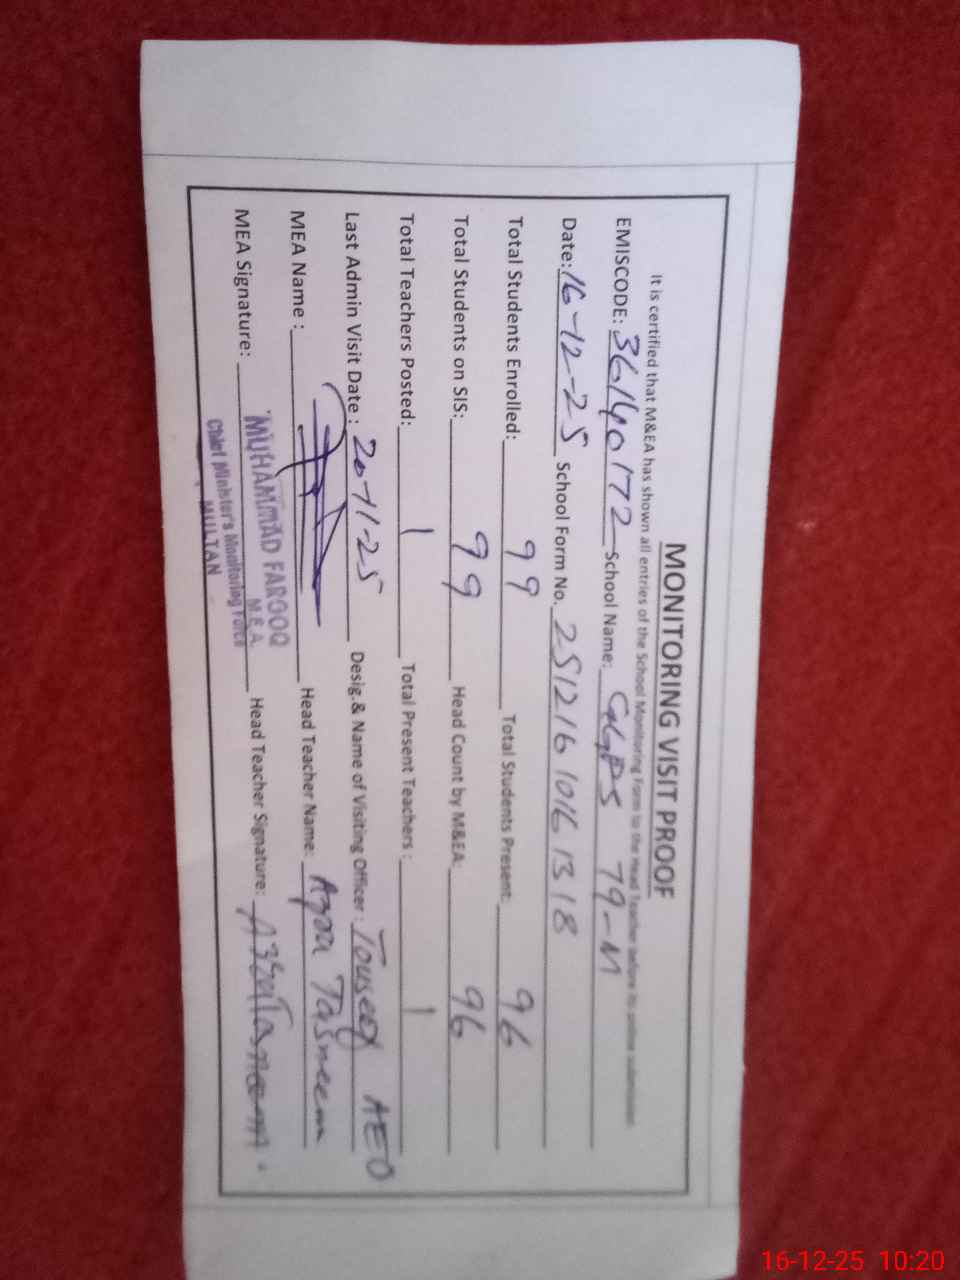 MONITORING VISIT PROOF
It is certified that M&EA has shown all entries of the School Monitoring Form to the Head Teacher before its online submission
EMISCODE: 36140172 School Name: GGPS 79-M
Date: 16-12-25 School Form No. 25121610161318
Total Students Enrolled: 99 Total Students Present: 96
Total Students on SIS: 99 Head Count by M&EA: 96
Total Teachers Posted: 1 Total Present Teachers: 1
Last Admin Visit Date: 20-11-25 Desig.& Name of Visiting Officer: Touseef AEO
MEA Name: Head Teacher Name: Azra Tasneem
MEA Signature: Head Teacher Signature: Azra Tasneem
MUHAMMAD FAROOQ
M.E.A.
Chief Minister's Monitoring Force
MULTAN
16-12-25 10:20